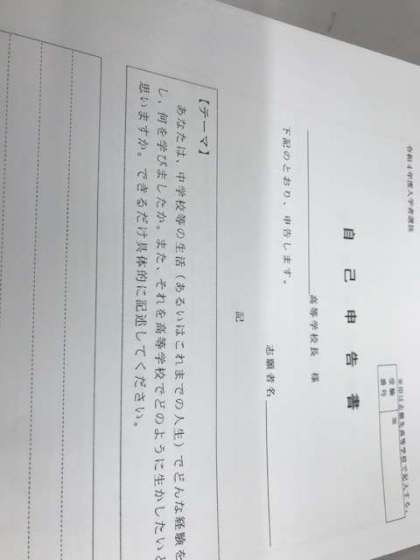 令和4年度入学者選抜
※印は志願先高等学校で記入する。
受験番号
※
自己申告書
高等学校長 様
志願者名
下記のとおり、申告します。
記
【テーマ】
あなたは、中学校等の生活（あるいはこれまでの人生）でどんな経験を
し、何を学びましたか。また、それを高等学校でどのように生かしたいと
思いますか。できるだけ具体的に記述してください。